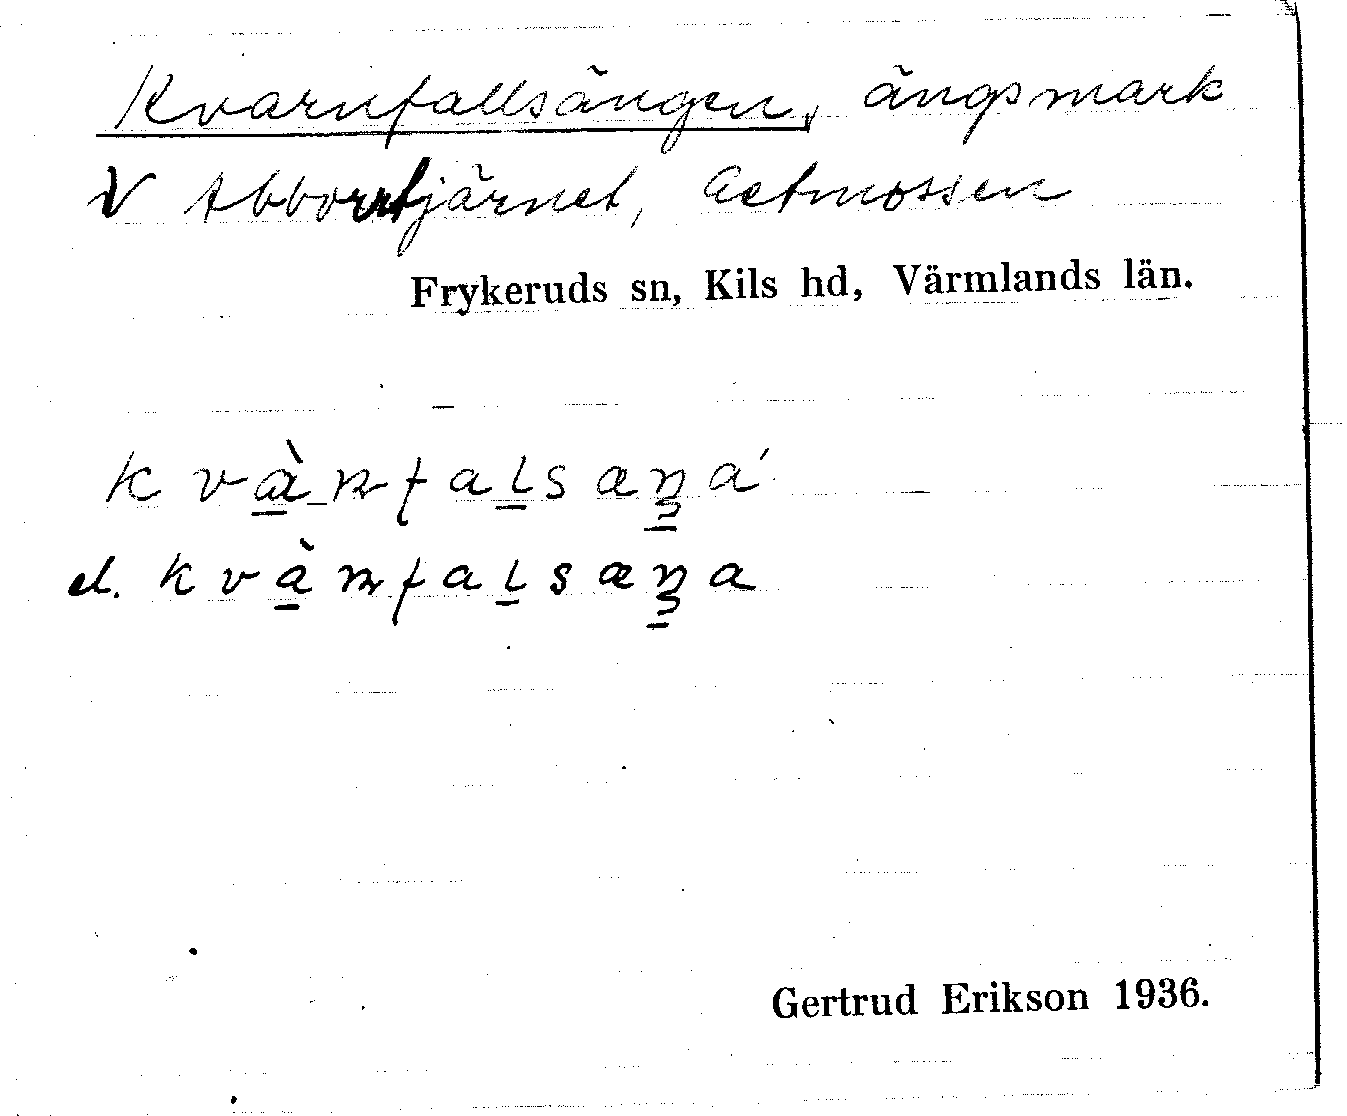 Kvarnfallsängen, ängsmark
V Abborrtjärnet,
Frykeruds sn, Kils hd, Värmlands län.
kvànfalsæŋá
el. kvànfalsæŋa
Gertrud Erikson 1936.